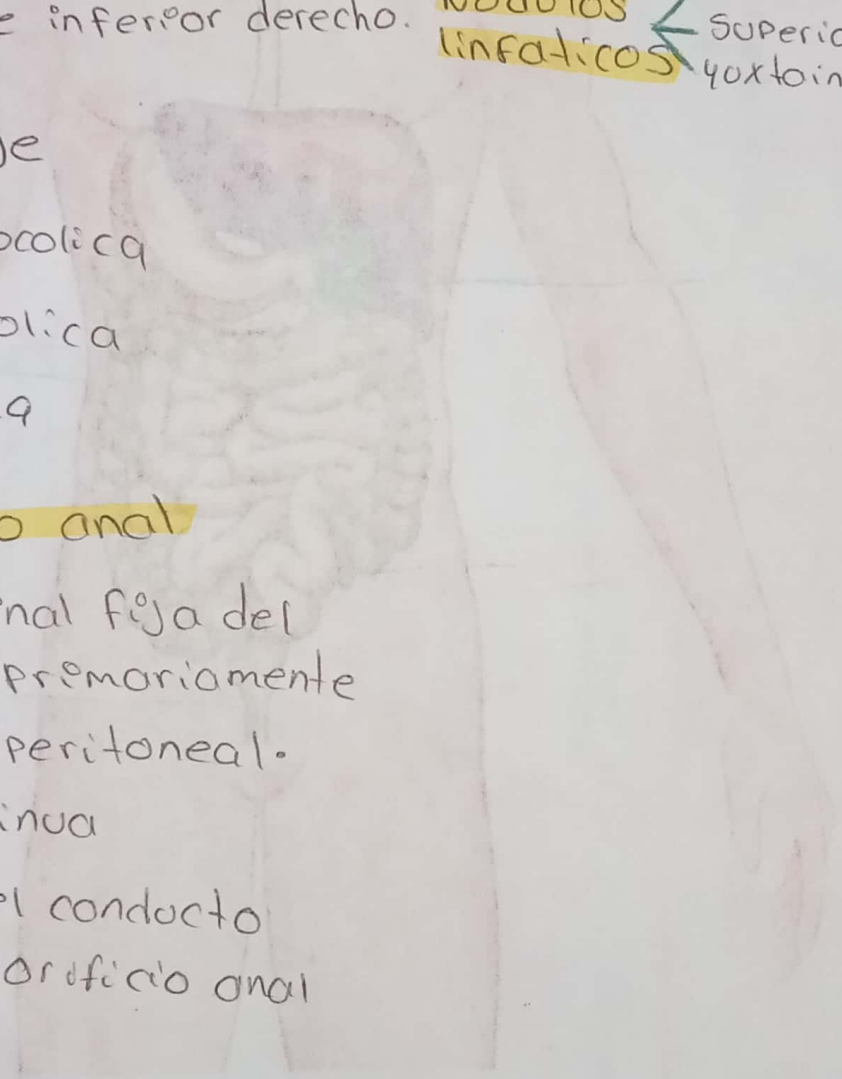 e inferior derecho.
Nodulos
linfaticos
superio
yuxtoin
de
ocolica
olica
a
o anal
nal fija del
primariamente
peritoneal.
inua
el conducto
orificio anal